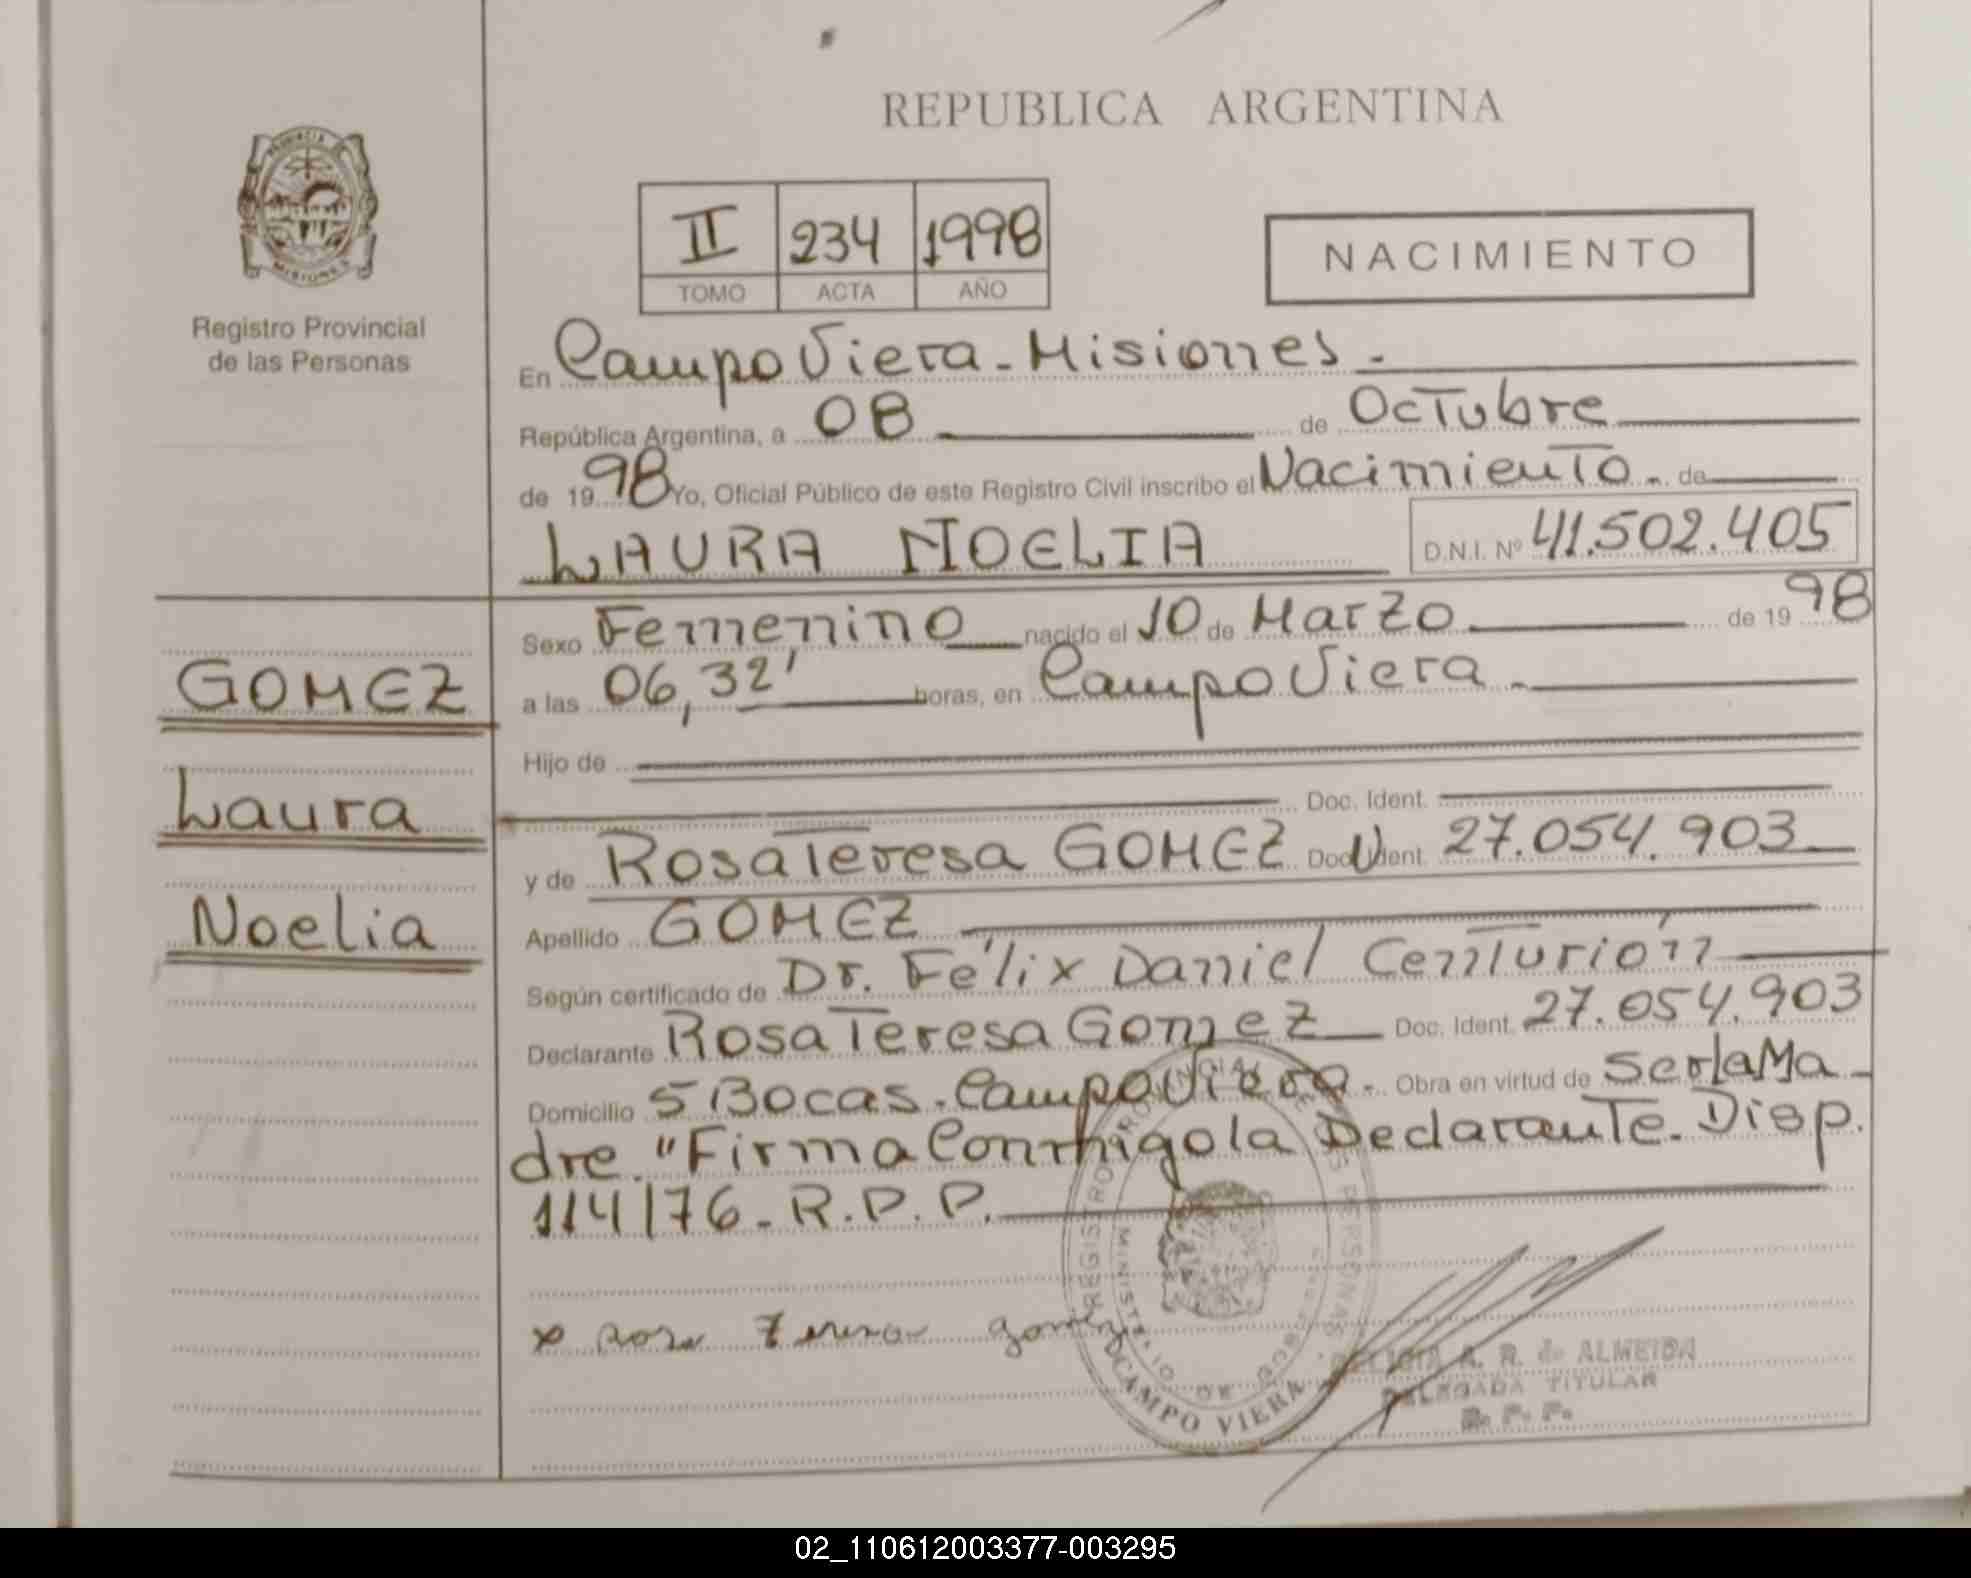 REPUBLICA ARGENTINA
PROVINCIA DE
MISIONES
Registro Provincial
de las Personas
II 234 1998
TOMO ACTA AÑO
NACIMIENTO
En Campo Viera - Misiones.
República Argentina, a 08 de Octubre
de 1998 Yo, Oficial Público de este Registro Civil inscribo el Nacimiento. de
LAURA NOELIA D.N.I. Nº 41.502.405
Sexo Femenino nacido el 10 de Marzo de 1998
GOMEZ
a las 06,32' horas, en Campo Viera.
Hijo de
Laura
Doc. Ident.
y de Rosa Teresa GOMEZ Doc. Ident. 27.054.903
Noelia
Apellido GOMEZ
Según certificado de Dr. Félix Daniel Centurión
Declarante Rosa Teresa Gomez Doc. Ident. 27.054.903
Domicilio 5 Bocas. Campo Viera. Obra en virtud de ser la Ma
dre. "Firma Conmigo la Declarante. Disp.
114/76 - R.P.P.
x rosa teresa gomez
REGISTRO PROVINCIAL DE LAS PERSONAS
MINISTERIO DE GOBIERNO
CAMPO VIERA
A. R. de ALMEIDA
DELEGADA TITULAR
R. P. P.
02_110612003377-003295